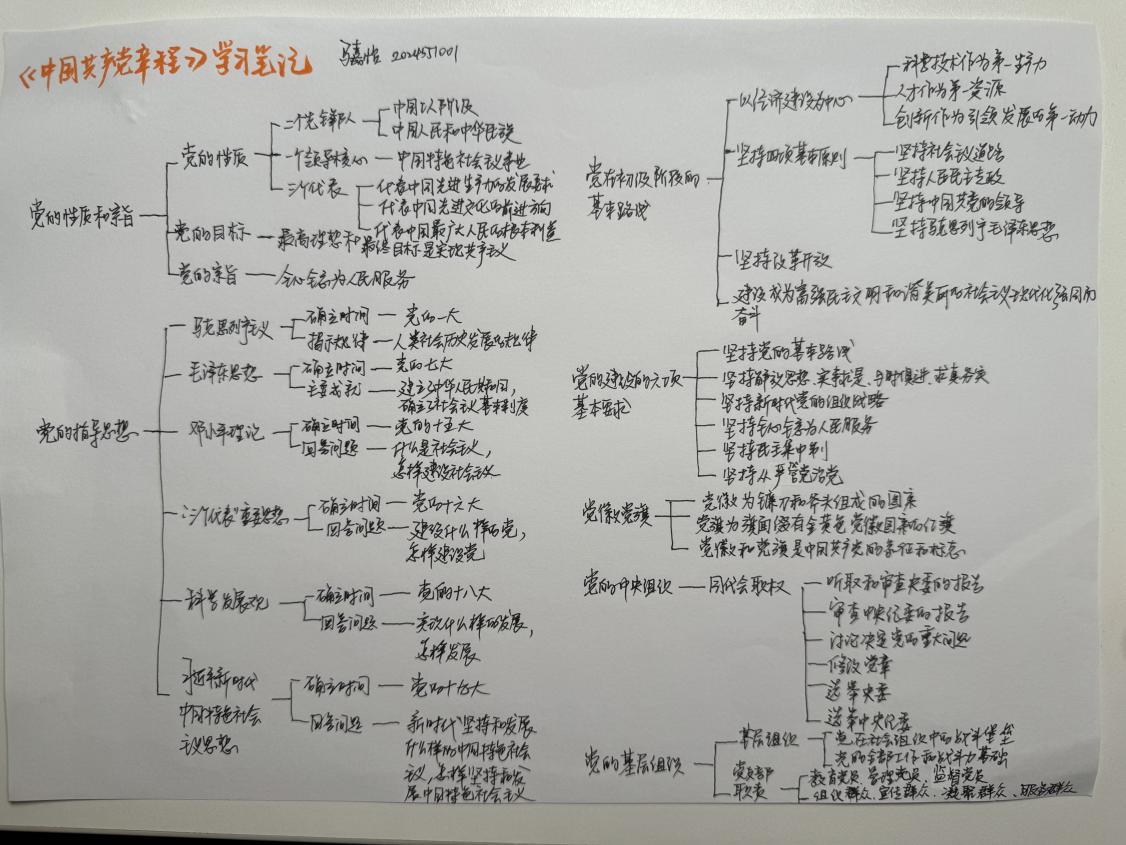 《中国共产党章程》学习笔记
马嘉怡 2024551001
党的性质和宗旨
党的性质
二个先锋队
中国工人阶级
中国人民和中华民族
一个领导核心
中国特色社会主义事业
三个代表
代表中国先进生产力的发展要求
代表中国先进文化的前进方向
代表中国最广大人民的根本利益
党的目标
最高理想和最终目标是实现共产主义
党的宗旨
全心全意为人民服务
党的指导思想
马克思列宁主义
确立时间
党的一大
揭示规律
人类社会历史发展的规律
毛泽东思想
确立时间
党的七大
主要成就
建立了中华人民共和国,
确立了社会主义基本制度
邓小平理论
确立时间
党的十五大
回答问题
什么是社会主义,
怎样建设社会主义
"三个代表"重要思想
确立时间
党的十六大
回答问题
建设什么样的党,
怎样建设党
科学发展观
确立时间
党的十八大
回答问题
实现什么样的发展,
怎样发展
习近平新时代
中国特色社会
主义思想
确立时间
党的十九大
回答问题
新时代坚持和发展
什么样的中国特色社会
主义,怎样坚持和发
展中国特色社会主义
党在初级阶段的
基本路线
以经济建设为中心
科学技术作为第一生产力
人才作为第一资源
创新作为引领发展的第一动力
坚持四项基本原则
坚持社会主义道路
坚持人民民主专政
坚持中国共产党的领导
坚持马克思列宁毛泽东思想
坚持改革开放
建设成为富强民主文明和谐美丽的社会主义现代化强国而
奋斗
党的建设的六项
基本要求
坚持党的基本路线
坚持解放思想、实事求是、与时俱进、求真务实
坚持新时代党的组织战略
坚持全心全意为人民服务
坚持民主集中制
坚持从严管党治党
党徽党旗
党徽为镰刀和斧头组成的图案
党旗为旗面缀有金黄色党徽图案的红旗
党徽和党旗是中国共产党的象征和标志
党的中央组织
国代会职权
听取和审查央委的报告
审查中央纪委的报告
讨论决定党的重大问题
修改党章
选举央委
选举中央纪委
党的基层组织
基层组织
党在社会组织中的战斗堡垒
党的全部工作和战斗力基础
党支部
职责
教育党员、管理党员、监督党员
组织群众、宣传群众、凝聚群众、服务群众